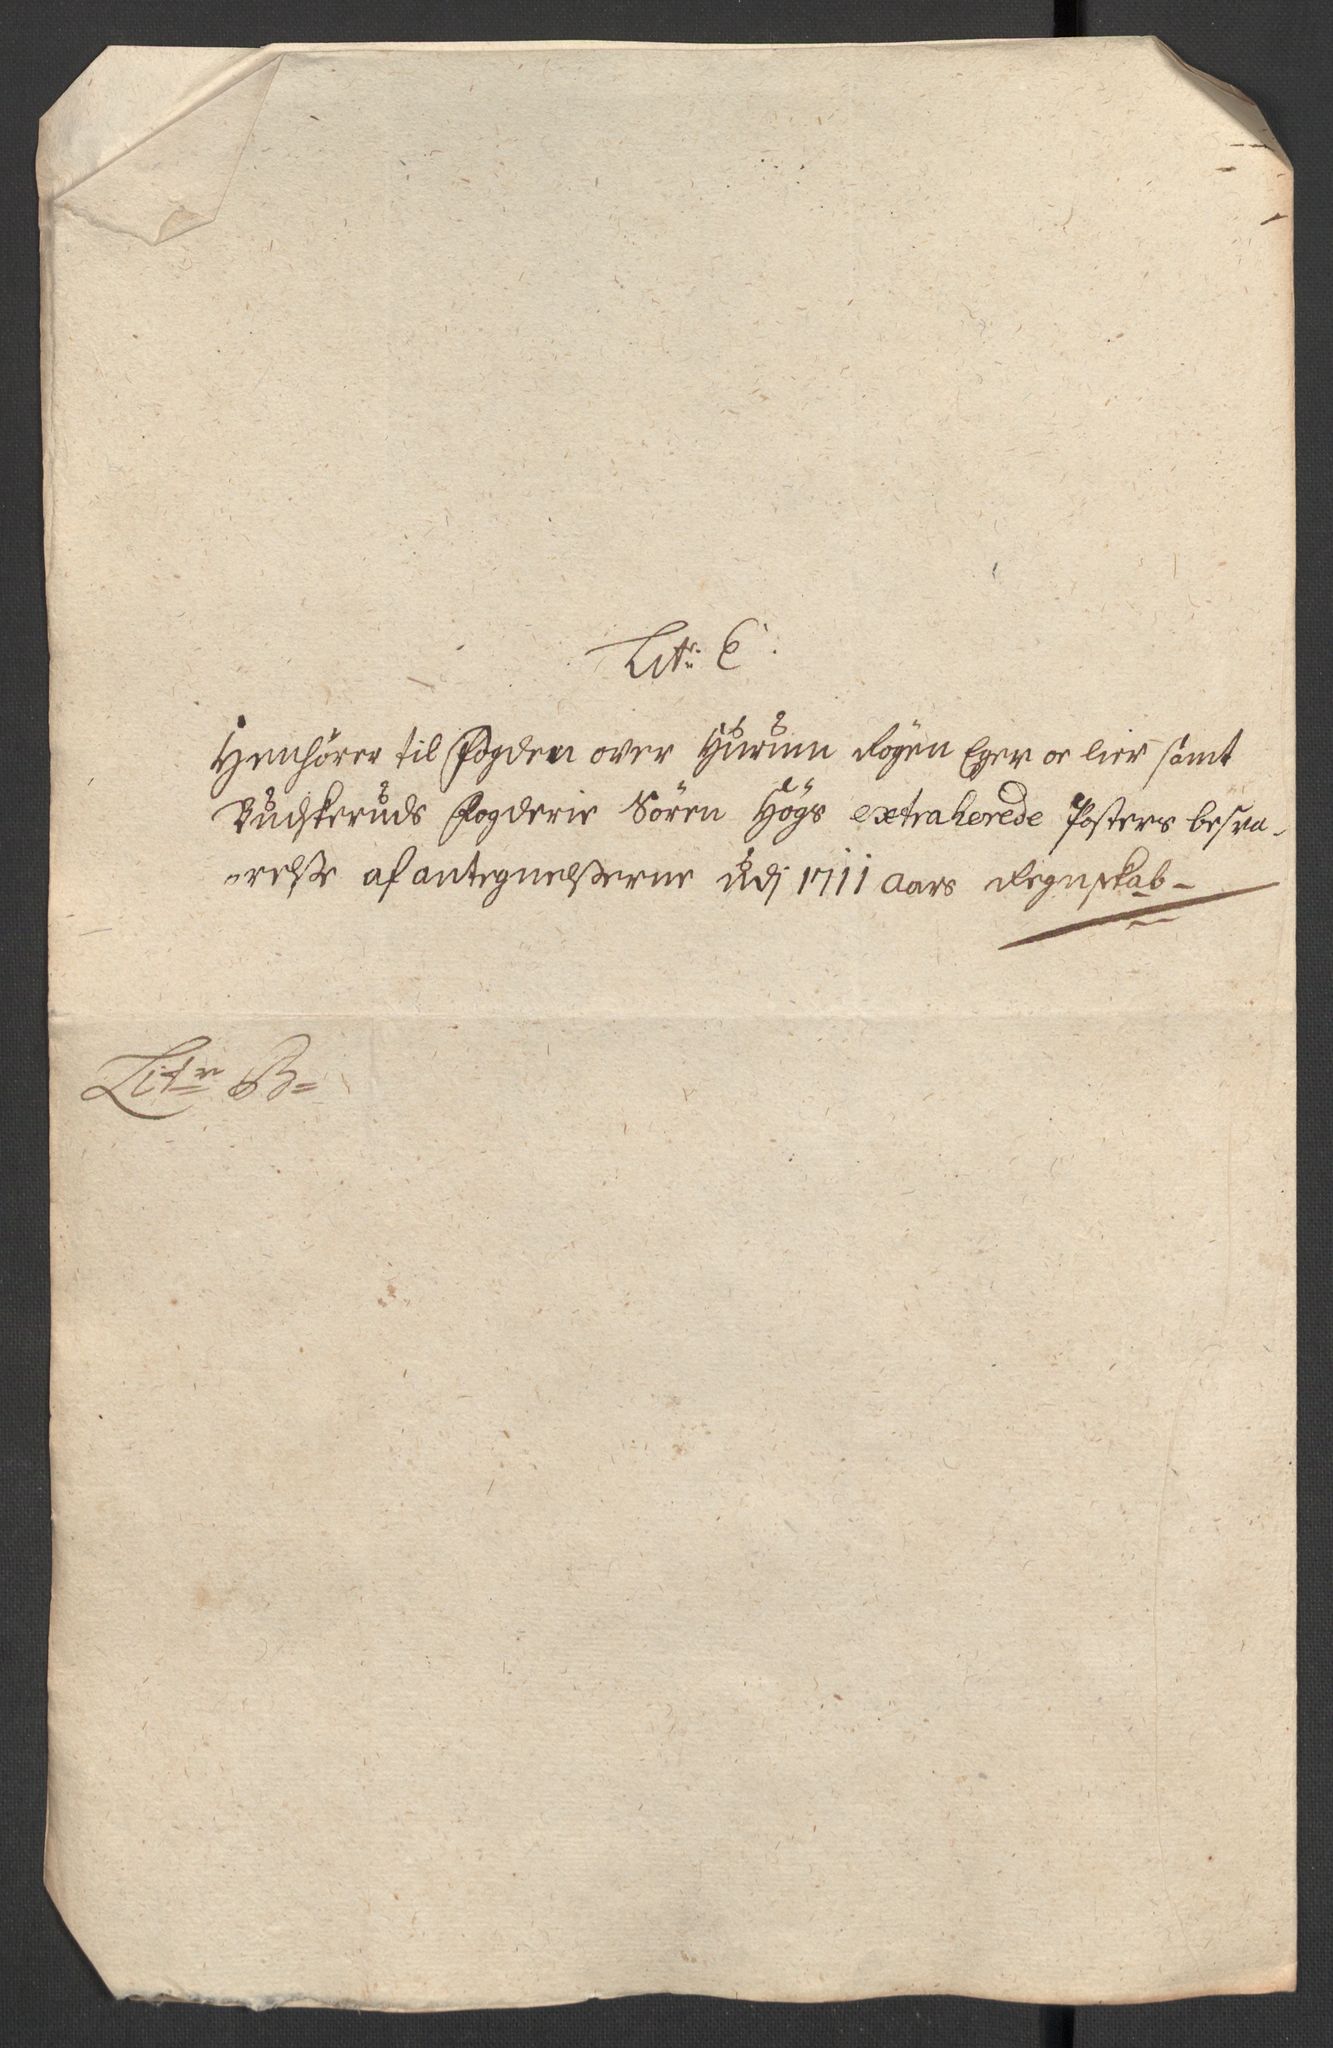 Litr: C
Henhörer til Fogden over Hurum Røgen Eger oc lier samt
Budskeruds Fogderie Sören Högs extraherede Posters besva-
-relße af antegnelßerne Udj 1711 Aars Regnskab-
Litr B=